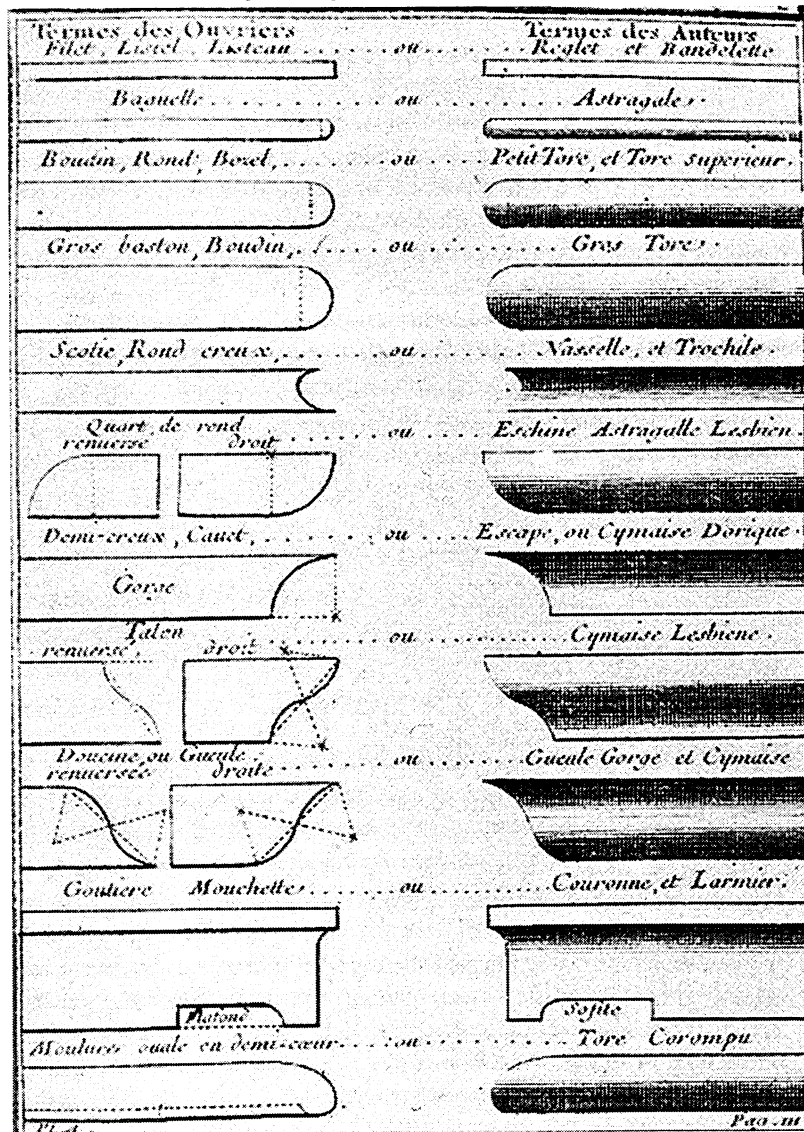 Termes des Ouvriers Termes des Auteurs
Filet, Listel, Listeau ou Reglet et Bandelette
Baguette ou Astragale.
Boudin, Rond, Bozel, ou Petit Tore, et Tore superieur.
Gros baston, Boudin, ou Gros Tore.
Scotie, Rond creux, ou Nasselle, et Trochile.
Quart de rond
renuersé droit ou Eschine Astragalle Lesbien.
Demi-creux, Cauet, ou Escape, ou Cymaise Dorique.
Gorge
Talon
renuersé, droit ou Cymaise Lesbiene.
Doucine ou Gueule
renuersée droite ou Gueule Gorge et Cymaise
Goutiere Mouchette ou Couronne, et Larmier.
Plafond Sofite
Moulures ouale en demi-cœur ou Tore Corompu
Pag.